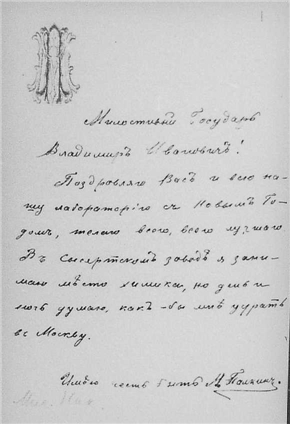 Милостивый Государь
Владиміръ Ивановичъ!
Поздровляю Васъ и всю на-
шу лабораторію съ Новымъ Го-
домъ, желаю всего, всего лучшаго
Въ Сысертскомъ заводѣ я зани-
маю мѣсто химика, но день и
ночь думаю, какъ-бы мнѣ удрать
въ Москву.
Имѣю честь быть М.